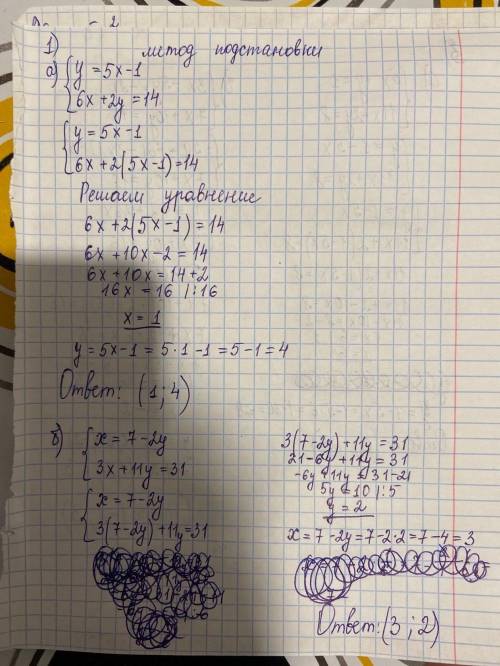 1) метод подстановки
а) { y = 5x-1
6x+2y = 14
{ y = 5x-1
6x+2(5x-1)=14
Решаем уравнение
6x+2(5x-1)=14
6x+10x-2=14
6x+10x=14+2
16x = 16 |:16
x = 1
y = 5x-1 = 5·1-1 = 5-1 = 4
Ответ: (1;4)
б) { x = 7-2y
3x+11y=31
{ x = 7-2y
3(7-2y)+11y=31
3(7-2y)+11y=31
21-6y+11y=31
-6y+11y=31-21
5y=10 |:5
y = 2
x = 7-2y = 7-2·2 = 7-4 = 3
Ответ: (3;2)